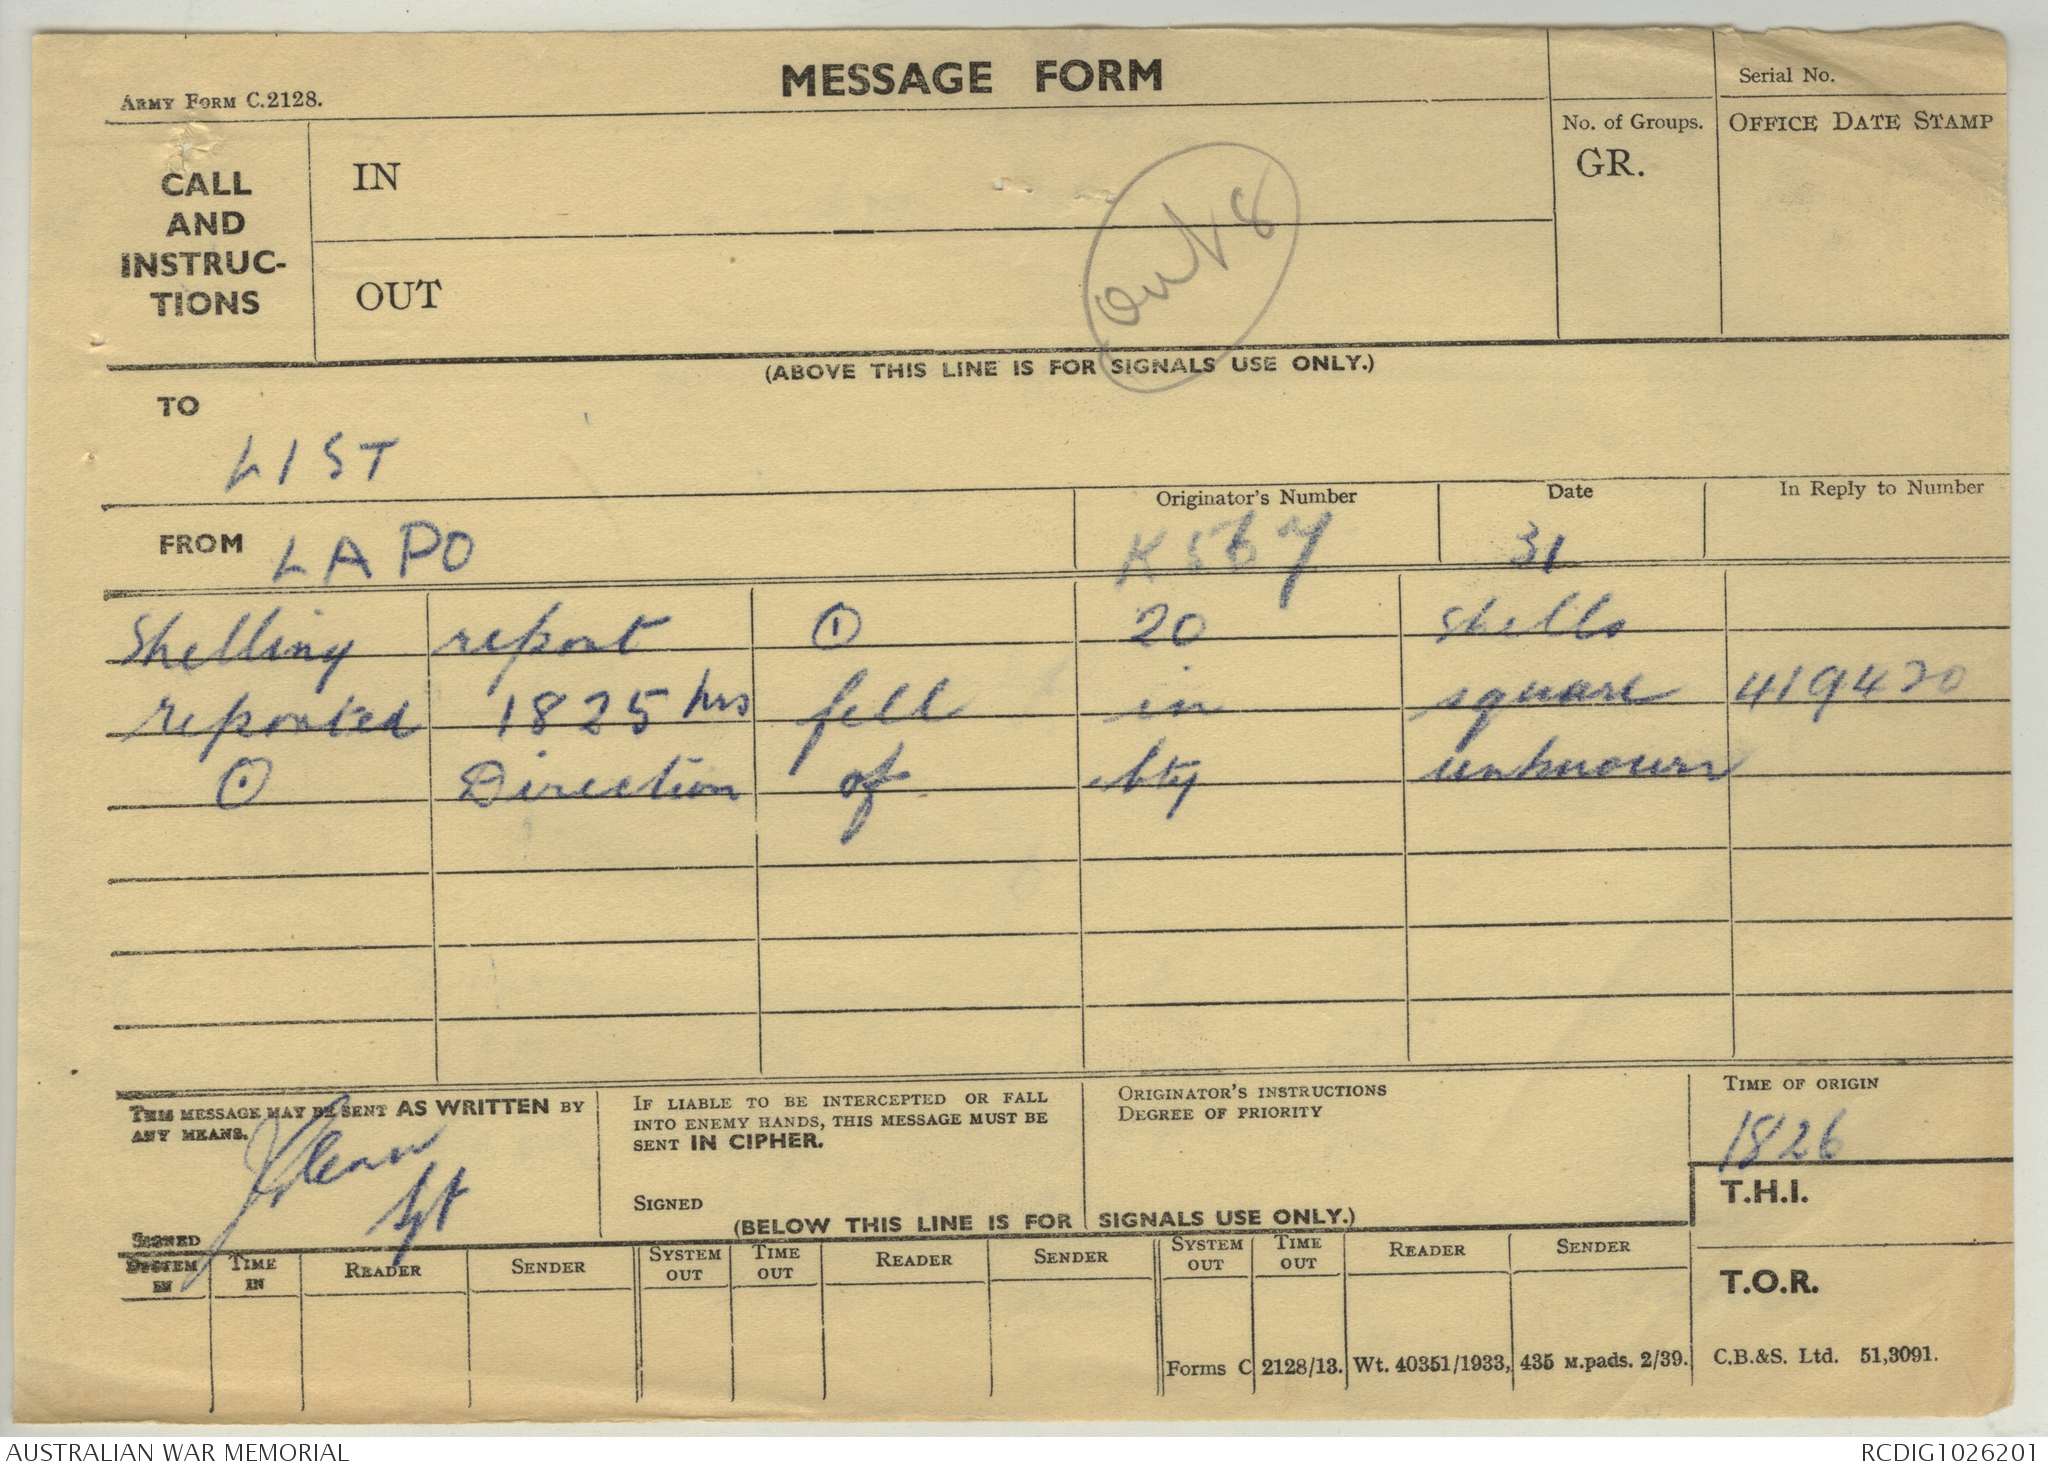 MESSAGE FORM
ARMY FORM C.2128.
Serial No.
No. of Groups.
GR.
OFFICE DATE STAMP
CALL
AND
INSTRUC-
TIONS
IN
OUT
(ABOVE THIS LINE IS FOR SIGNALS USE ONLY.)
TO
LIST
FROM LAPO
Originator's Number
K567
Date
31
In Reply to Number
Shelling report ⨀ 20 shells
reported 1825 hrs fell in square 419420
⨀ Direction of bty unknown
THIS MESSAGE MAY BE SENT AS WRITTEN BY
ANY MEANS.
Sgt
SIGNED
IF LIABLE TO BE INTERCEPTED OR FALL
INTO ENEMY HANDS, THIS MESSAGE MUST BE
SENT IN CIPHER.
SIGNED
ORIGINATOR'S INSTRUCTIONS
DEGREE OF PRIORITY
TIME OF ORIGIN
1826
T.H.I.
(BELOW THIS LINE IS FOR SIGNALS USE ONLY.)
SYSTEM IN TIME IN READER SENDER SYSTEM OUT TIME OUT READER SENDER SYSTEM OUT TIME OUT READER SENDER
T.O.R.
Forms C 2128/13. Wt. 40351/1933, 435 M.pads. 2/39. C.B.&S. Ltd. 51,3091.
AUSTRALIAN WAR MEMORIAL
RCDIG1026201